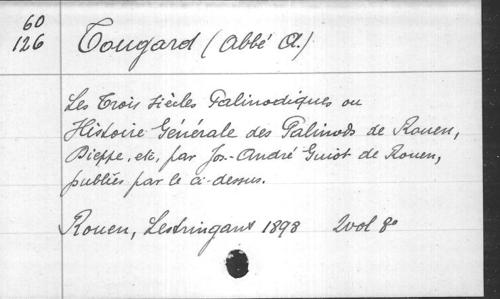 60
126
Tougard (Abbé A.)
Les Trois siècles Palinodiques ou
Histoire Générale des Palinods de Rouen,
Dieppe, etc, par Jos.-André Guiot de Rouen,
publiés par le ci-dessus.
Rouen, Lestringant 1898 2vol 8º